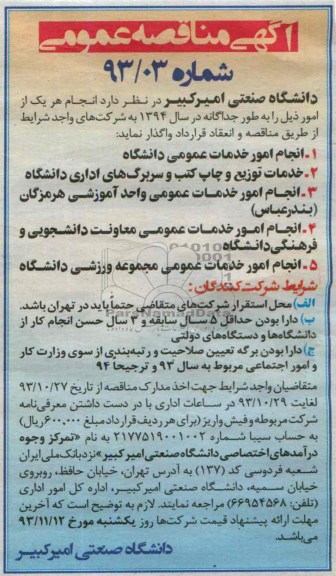 آگهی مناقصه عمومی
شماره ۹۳/۰۳
دانشگاه صنعتی امیرکبیر در نظر دارد انجام هر یک از
امور ذیل را به طور جداگانه در سال ۱۳۹۴ به شرکت‌های واجد شرایط
از طریق مناقصه و انعقاد قرارداد واگذار نماید:
۱- انجام امور خدمات عمومی دانشگاه
۲- خدمات توزیع و چاپ کتب و سربرگ‌های اداری دانشگاه
۳- انجام امور خدمات عمومی واحد آموزشی هرمزگان
(بندرعباس)
۴- انجام امور خدمات عمومی معاونت دانشجویی و
فرهنگی دانشگاه
۵- انجام امور خدمات عمومی مجموعه ورزشی دانشگاه
شرایط شرکت‌کنندگان:
الف) محل استقرار شرکت‌های متقاضی حتماً باید در تهران باشد.
ب) دارا بودن حداقل ۵ سال سابقه و ۳ سال حسن انجام کار از
دانشگاه‌ها و دستگاه‌های دولتی
ج) دارا بودن برگه تعیین صلاحیت و رتبه‌بندی از سوی وزارت کار
و امور اجتماعی مربوط به سال ۹۳ و ترجیحا ۹۴
متقاضیان واجد شرایط جهت اخذ مدارک مناقصه از تاریخ ۹۳/۱۰/۲۷
لغایت ۹۳/۱۰/۲۹ در ساعات اداری با در دست داشتن معرفی‌نامه
شرکت مربوطه و فیش واریز (برای هر ردیف قرارداد مبلغ ۶۰۰,۰۰۰ ریال)
به حساب سیبا شماره ۲۱۷۷۵۱۹۰۰۱۰۰۲ به نام «تمرکز وجوه
درآمدهای اختصاصی دانشگاه صنعتی امیرکبیر» نزد بانک ملی ایران
شعبه فردوسی کد (۱۳۷) به آدرس تهران، خیابان حافظ، روبروی
خیابان سمیه، دانشگاه صنعتی امیرکبیر، اداره کل امور اداری
(تلفن: ۶۶۹۵۴۵۶۸) مراجعه نمایند. لازم به توضیح است که آخرین
مهلت ارائه پیشنهاد قیمت شرکت‌ها روز یکشنبه مورخ ۹۳/۱۱/۱۲
می‌باشد.
دانشگاه صنعتی امیرکبیر